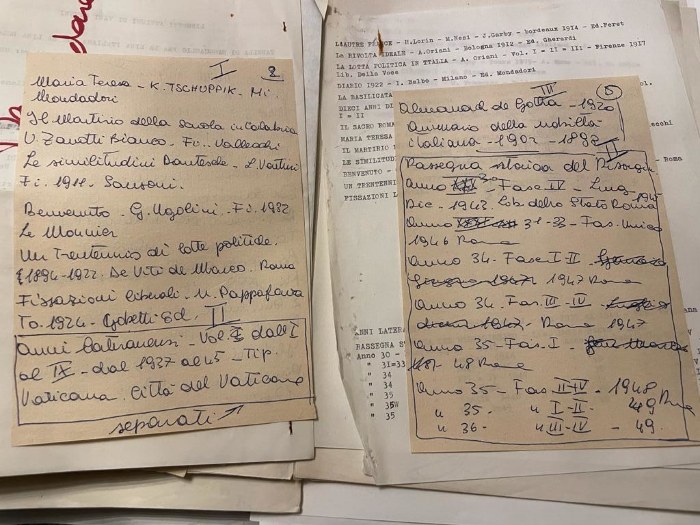 I 2
Maria Teresa - K. TSCHUPPIK - Mi.
Mondadori
Il Martirio della scuola in Calabria
U. Zanotti Bianco - Fi. Vallecchi
Le similitudini Dantesche - L. Venturi
Fi. 1911 - Sansoni.
Benvenuto - G. Ugolini - Fi. 1932
Le Monnier
Un Trentennio di lotte politiche.
1894-1922. De Viti de Marco. Roma
Fissazioni liberali - N. Pappafava
To. 1924 - Gobetti Ed.
II
Annali Lateranensi - Vol. dall'I
al IX - dal 1937 al 45 - Tip.
Vaticana. Città del Vaticano
separati
L'AUTRE FRANCE - H.Lorin - M.Rossi - J.Garby - bordeaux 1914 - Ed.Feret
La RIVOLTA IDEALE - A.Oriani - Bologna 1912 - Ed. Gherardi
LA LOTTA POLITICA IN ITALIA - A. Oriani - Vol. I = II = III - Firenze 1917
Lib. Della Voce
DIARIO 1922 - I. Balbo - Milano - Ed. Mondadori
LA BASILICATA
DIECI ANNI DI
I = II
IL SACRO ROMA
MARIA TERESA
IL MARTIRIO
LE SIMILITUD
BENVENUTO -
UN TRENTENNI
FISSAZIONI L
ANNI LATER
RASSEGNA S
Anno 30 -
" 31=33
" 34
" 34
" 35
" 35
" 35
III 5
Almanach de Gotha - 1920
Annuario della nobiltà
italiana - 1902 - 1892
II
Rassegna storica del Risorgi.
Anno 30 - Fasc. IV - Lug.
Dic. 1943. Lib. dello Stato Roma
Anno 31-33 - Fas. Unico
1946 Roma
Anno 34 - Fasc. I-II -
1947 Roma
Anno 34. Fas. III-IV -
Roma 1947
Anno 35 - Fas. I -
48 Roma
Anno 35 - Fas. II-IV - 1948
" 35. " I-II - 49 Roma
" 36 - " III-IV - 49.